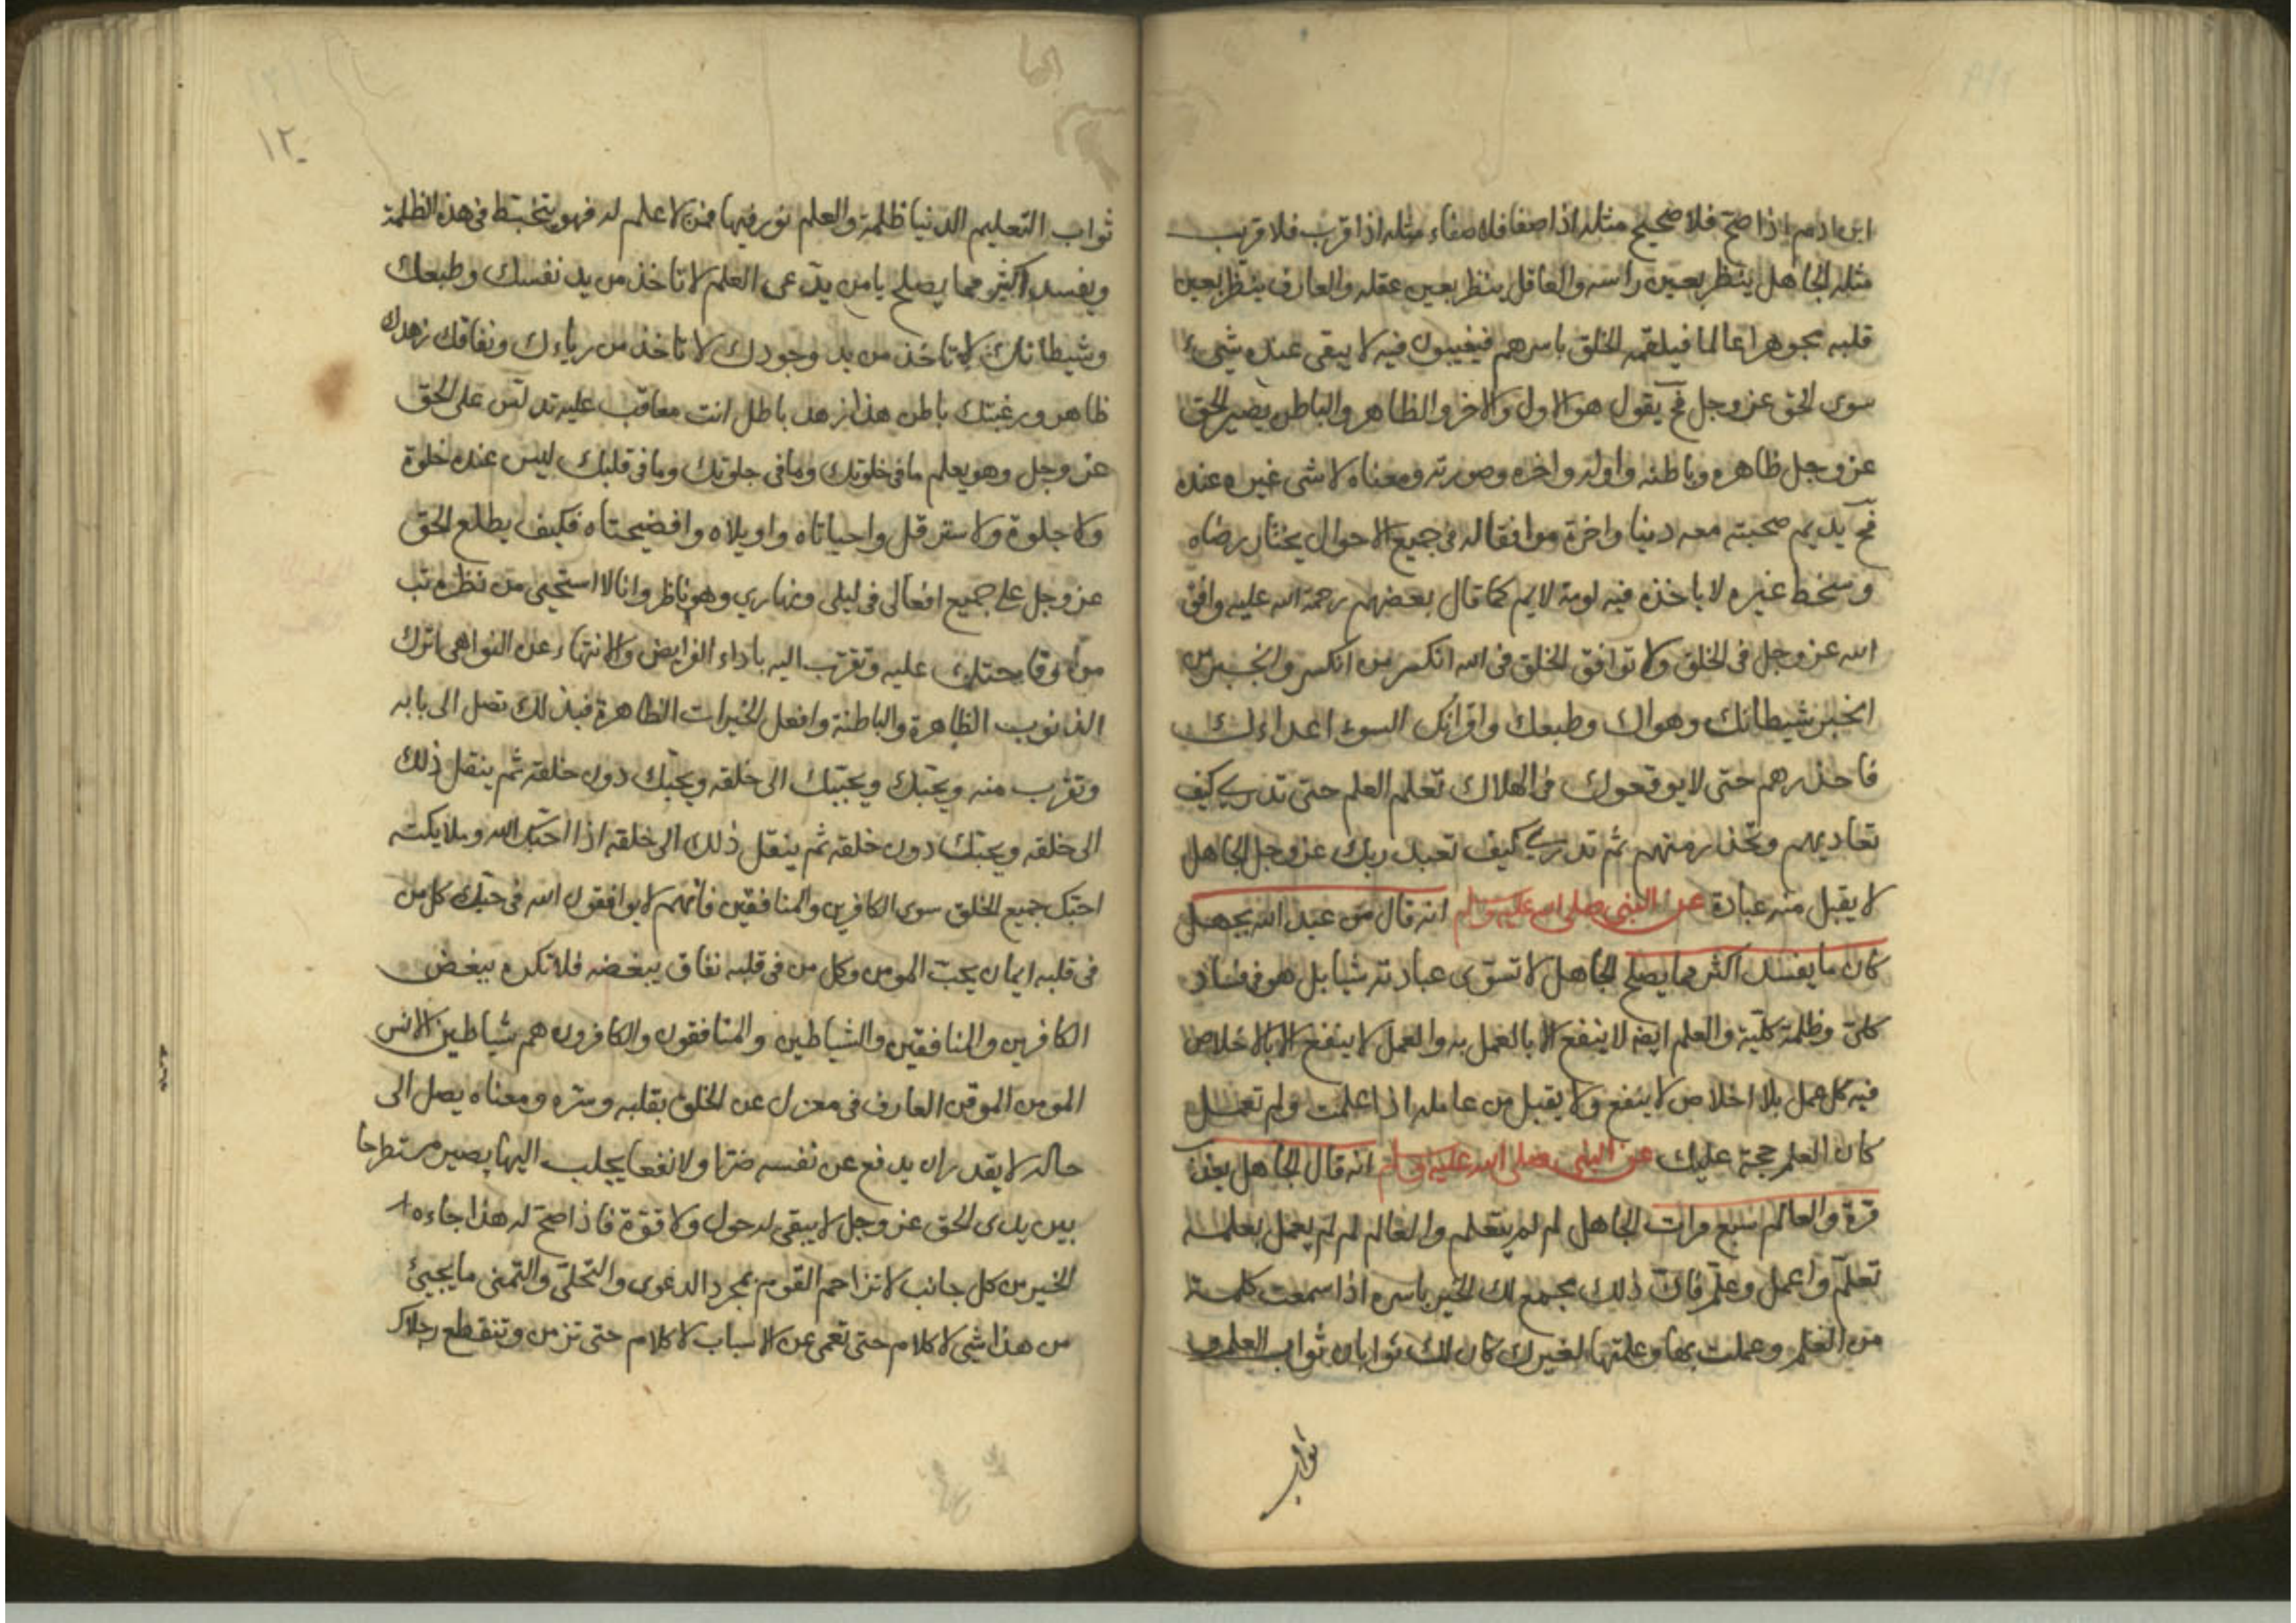 ابن ادم اذا صح فلا صحيح مثله اذا صفا فلا صفاء مثله اذا قرب فلا قريب
مثله الجاهل ينظر بعين راسه والعاقل ينظر بعين عقله والعارف ينظر بعين
قلبه جوهرا عالما فيلقمه الخلق باسرهم فيغيبون فيه لا يبقى عنده شيء
سوى الحق عز وجل فح يقول هو الاول والاخر والظاهر والباطن يصير الحق
عز وجل ظاهره وباطنه واوله واخره وصورته ومعناه لا شي غيره عنده
فح يديم صحبته معه دنيا واخرة موافقا له في جميع الاحوال يختار رضاه
وسخط غيره لا ياخذه فيه لومة لايم كما قال بعضهم رحمة الله عليه وافق
الله عز وجل في الخلق ولا توافق الخلق في الله انكسر من انكسر وانجبر من
انجبر شيطانك وهواك وطبعك واقرانك السوء اعداءك
فاحذرهم حتى لا يوقعوك في الهلاك تعلم العلم حتى تدري كيف
تعاديهم وتحذر منهم ثم تدري كيف تعبد ربك عز وجل الجاهل
لا يقبل منه عبادة عن النبي صلى الله عليه وسلم انه قال من عبد الله بجهل
كان ما يفسد اكثر مما يصلح الجاهل لا تسوى عبادته شيا بل هو في فساد
كلي وظلمة كلية والعلم ايضه لا ينفع الا بالعمل به والعمل لا ينفع الا بالاخلاص
فيه كل عمل بلا اخلاص لا ينفع ولا يقبل من عامله اذا علمت ولم تعمل
كان العلم حجة عليك عن النبي صلى الله عليه وسلم انه قال الجاهل يعذب
مرة والعالم سبع مرات الجاهل لم لم يتعلم والعالم لم لم يعمل بعلمه
تعلم واعمل وعلم فان ذلك يجمع لك الخير باسره اذا سمعت كلمة
من العلم وعملت بها وعلمتها لغيرك كان لك ثوابان ثواب العلم و
ثواب
١٢٠
ثواب التعليم الدنيا ظلمة والعلم نور فيها فمن لا علم له فهو يتخبط في هذه الظلمة
ويفسد اكثر مما يصلح يا من يدعى العلم لا تاخذ من يد نفسك وطبعك
وشيطانك لا تاخذ من يد وجودك لا تاخذ من رياءك ونفاقك زهدك
ظاهر ورغبتك باطن هذا زهد باطل انت معاقب عليه تدلس على الحق
عز وجل وهو يعلم ما في خلوتك وما في جلوتك وما في قلبك ليس عنده خلوة
ولا جلوة ولا ستر قل واحياتاه واويلاه وافضيحتاه فكيف يطلع الحق
عز وجل على جميع افعالي في ليلي ونهاري وهو ناظر وانا لا استحيى من نظره تب
من وقاحتك عليه وتقرب اليه باداء الفرايض والانتهاء عن النواهي اترك
الذنوب الظاهرة والباطنة وافعل الخيرات الظاهرة فبذلك تصل الى بابه
وتقرب منه ويحبك ويحببك الى خلقه ويحبك دون خلقه ثم ينقل ذلك
الى خلقه ويحبك دون خلقه ثم ينقل ذلك الى خلقه اذا احبك الله وملايكته
احبك جميع الخلق سوى الكافرين والمنافقين فانهم لا يوافقون الله في حبك كل من
في قلبه ايمان يحب المومن وكل من في قلبه نفاق يبغضه فلا تكره ببغض
الكافرين والمنافقين والشياطين والمنافقون والكافرون هم شياطين الانس
المومن الموقن العارف في معزل عن الخلق بقلبه وسره ومعناه يصل الى
حاله لا يقدر ان يدفع عن نفسه ضرا ولا نفعا يجلب اليها يصير مستطرحا
بين يدي الحق عز وجل لا يبقى له حول ولا قوة فاذا صح له هذا جاءه
الخير من كل جانب لا تزاحم القوم بمجرد الدعوى والتحلي والتمنى ما يجيئ
من هذا شي لا كلام حتى تعمى عن الاسباب لا كلام حتى تزمن وتنقطع رجلاك